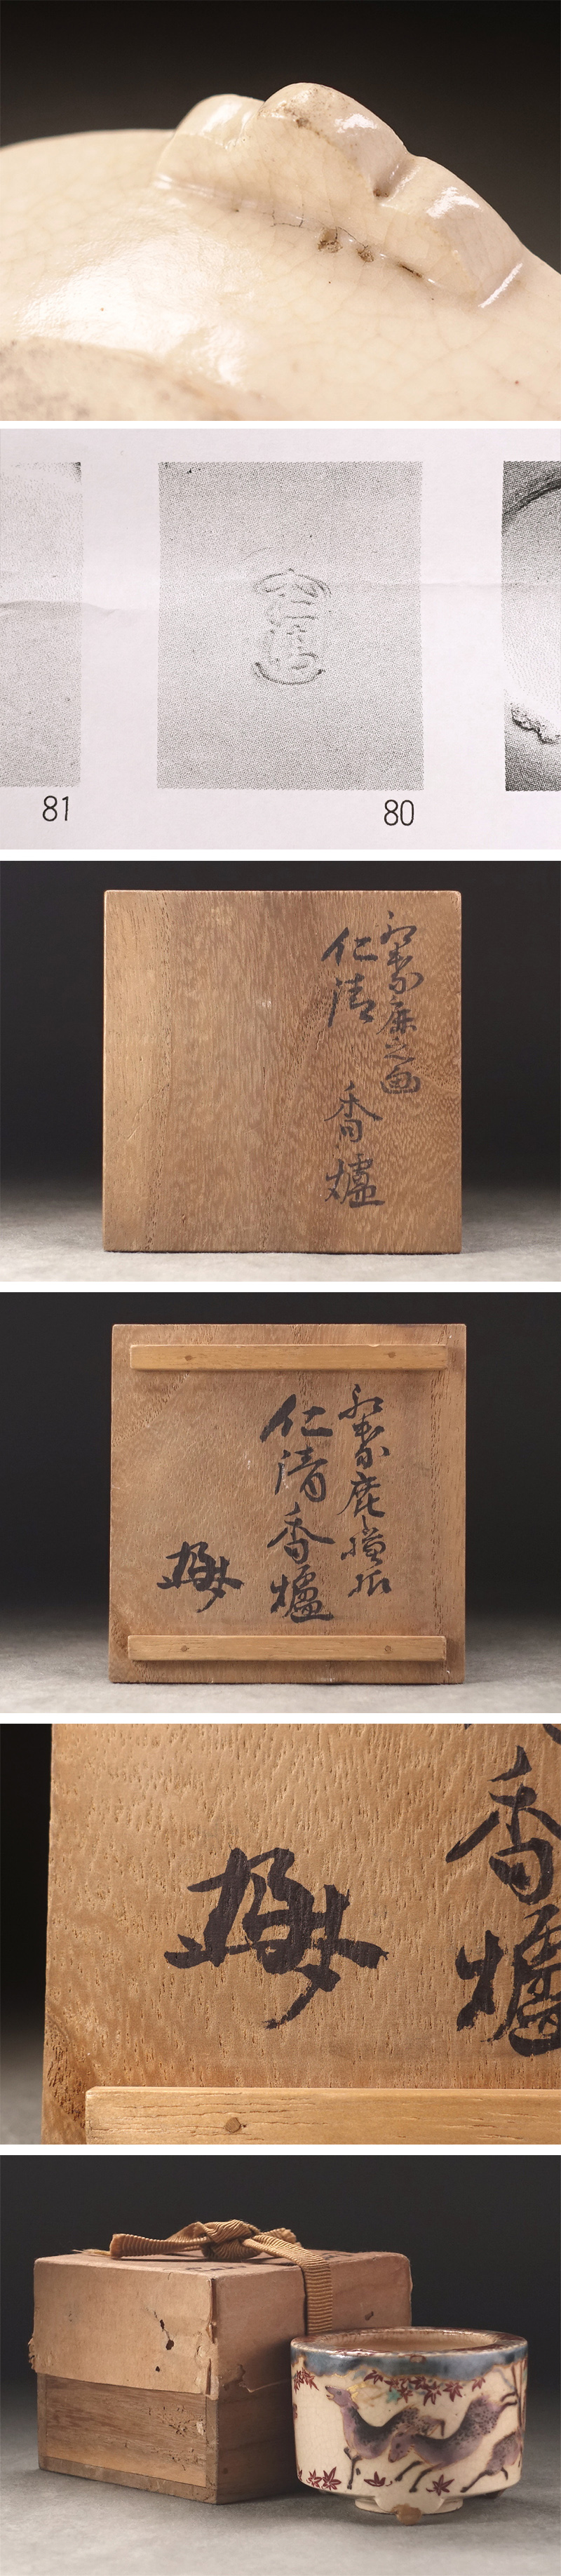 81
80
紅葉鹿之画
仁清 香爐
紅葉鹿
仁清香爐
香爐